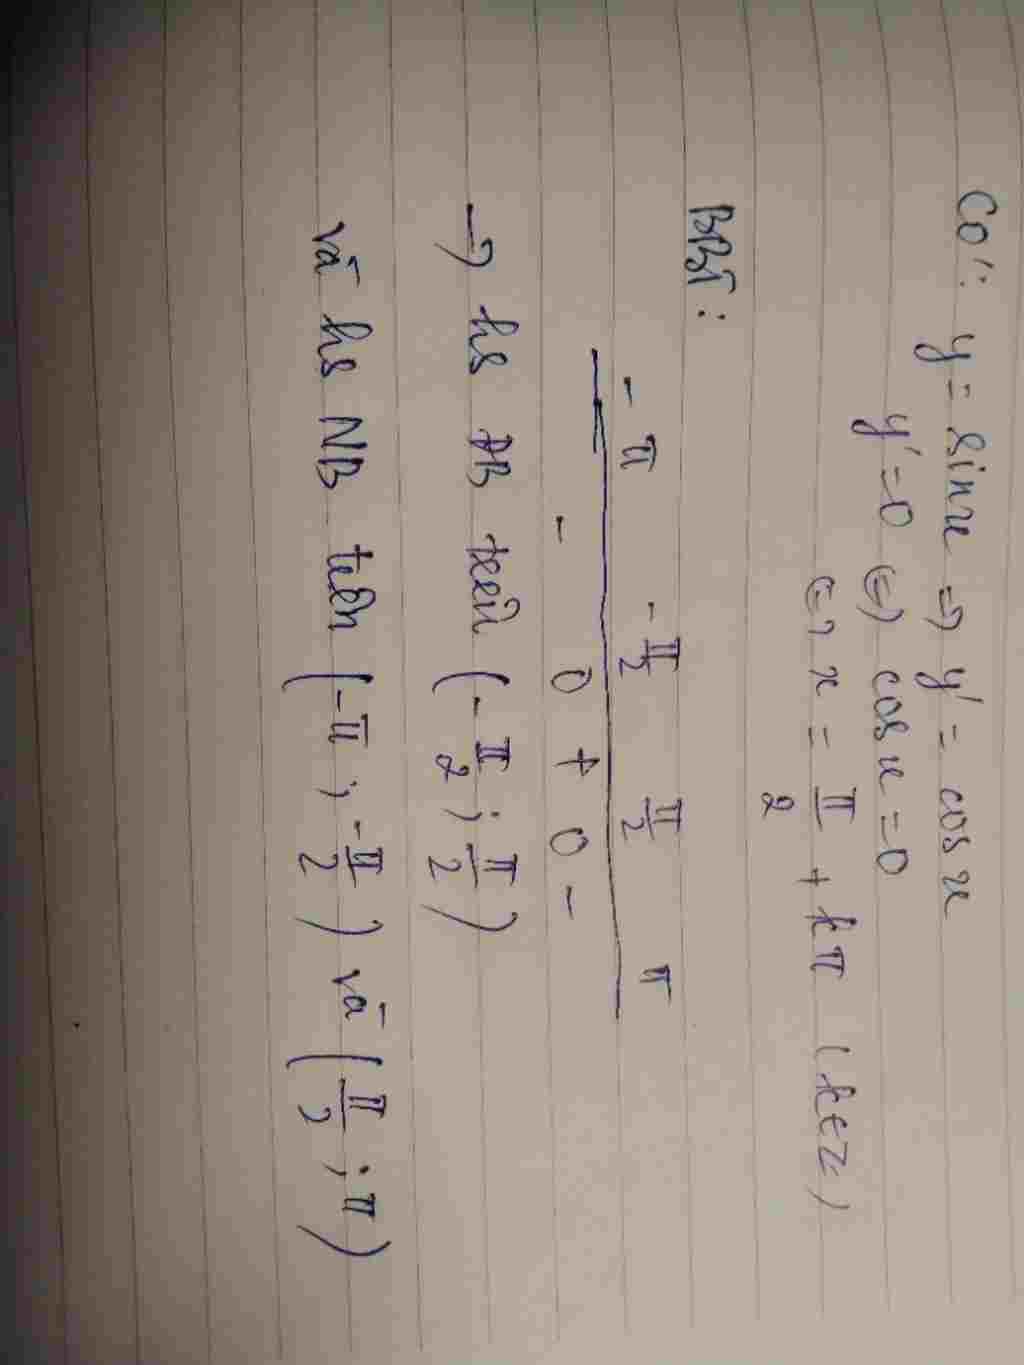 Có: y = sinx => y' = cosx
y' = 0 (=) cosx = 0
(=) x = π/2 + kπ (k∈Z)
BBT:
-π -π/2 π/2 π
- 0 + 0 -
→ hs ĐB trên (-π/2; π/2)
và hs NB trên (-π; -π/2) và (π/2; π)